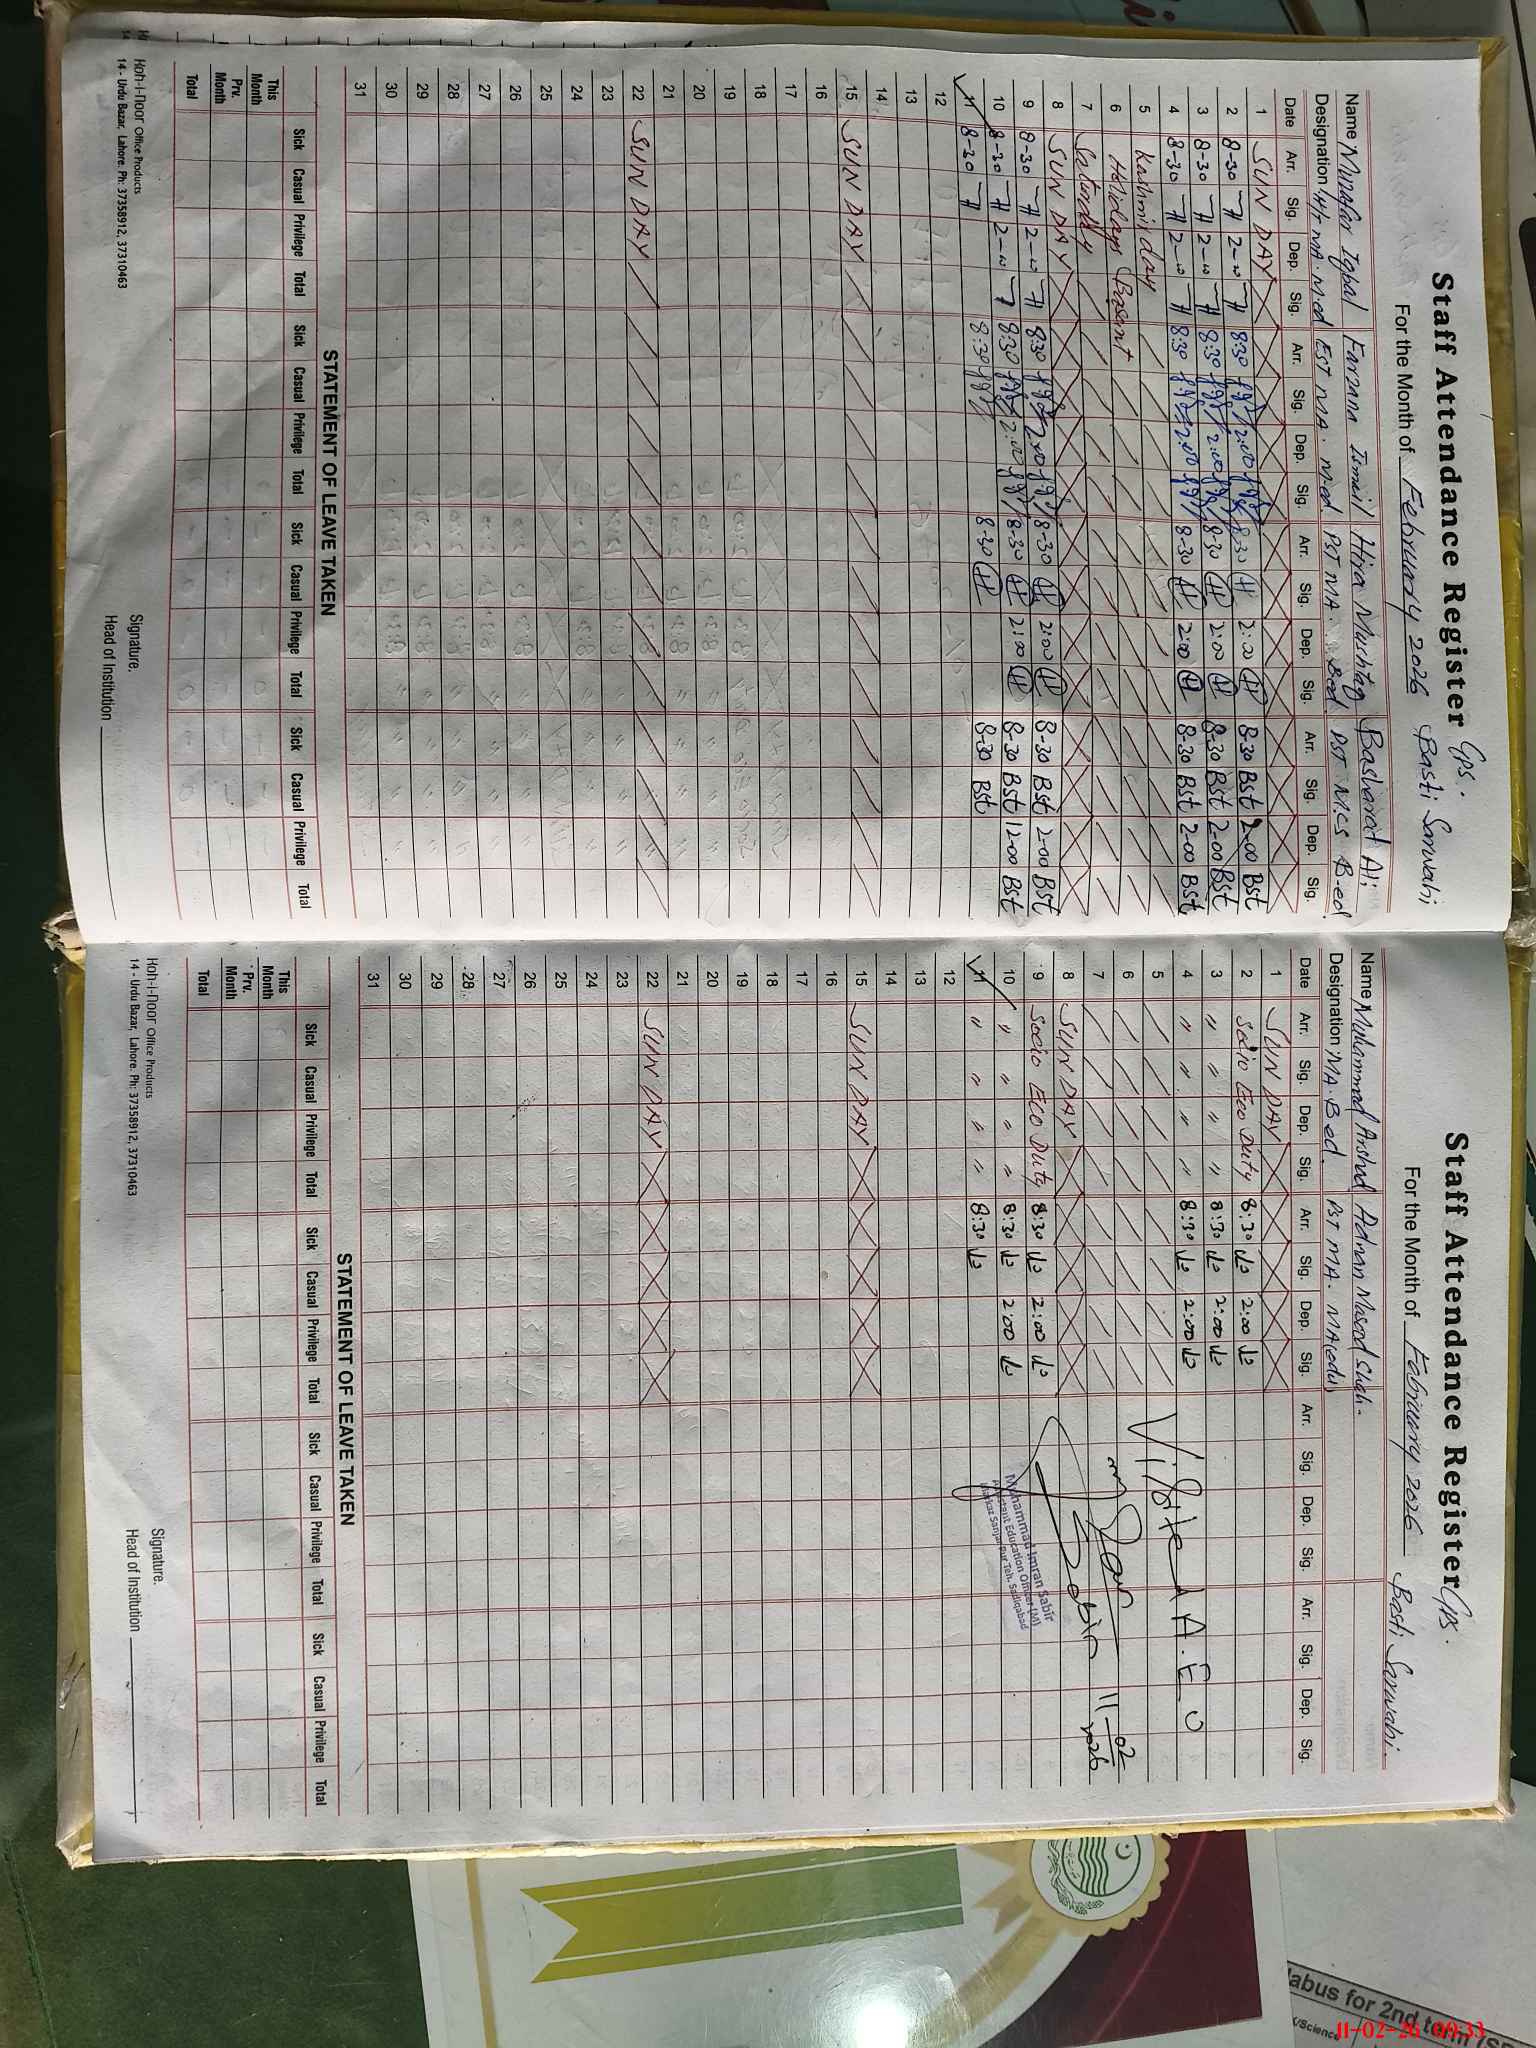 Staff Attendance Register GPS.
For the Month of February 2026 Basti Sarwahi
Name Muzafar Iqbal Farzana Ismail Hira Mushtaq Basharat Ali
Designation H/T MA. M.ed EST MA. M.ed PST MA. B.ed PST M.cs B-ed
Date Arr. Sig. Dep. Sig. Arr. Sig. Dep. Sig. Arr. Sig. Dep. Sig. Arr. Sig. Dep. Sig.
1 SUN DAY
2 8-30 2-00 8:30 2:00 8:30 H 2:00 H 8-30 Bst 2-00 Bst
3 8-30 2-00 8:30 2:00 8-30 H 2:00 H 8-30 Bst 2-00 Bst
4 8-30 2-00 8:30 2:00 8-30 H 2:00 H 8-30 Bst 2-00 Bst
5 Kashmir day
6 Holidays Basant
7 Saturday
8 SUN DAY
9 8-30 2-00 8:30 2:00 8-30 H 2:00 H 8-30 Bst 2-00 Bst
10 8-30 2-00 8:30 2:00 8-30 H 2:00 H 8-30 Bst 12-00 Bst
11 8-30 8:30 8-30 H 8-30 Bst
12
13
14
15 SUN DAY
16
17
18
19
20
21
22 SUN DAY
23
24
25
26
27
28
29
30
31
STATEMENT OF LEAVE TAKEN
Sick Casual Privilege Total Sick Casual Privilege Total Sick Casual Privilege Total Sick Casual Privilege Total
This Month
Prv. Month
Total
Koh-i-noor Office Products
14 - Urdu Bazar, Lahore. Ph: 37358912, 37310463
Signature.
Head of Institution
Staff Attendance Register GPS.
For the Month of February 2026 Basti Sarwahi.
Name Muhammad Arshad Adnan Masood Shah.
Designation MA. B ed. PST MA. MA(edu)
Date Arr. Sig. Dep. Sig. Arr. Sig. Dep. Sig. Arr. Sig. Dep. Sig. Arr. Sig. Dep. Sig.
1 SUN DAY
2 Socio Eco Duty 8:30 2:00
3 " " " " 8:30 2:00
4 " " " " 8:30 2:00
5
6
7
8 SUN DAY
9 Socio Eco Duty 8:30 2:00
10 " " " " 8:30 2:00
11 " " " " 8:30
12
13
14
15 SUN DAY
16
17
18
19
20
21
22 SUN DAY
23
24
25
26
27
28
29
30
31
Visited A.E.O
Sabir 11-02-2026
Muhammad Imran Sabir
Assistant Education Officer (M)
Markaz Sanjarpur Teh. Sadiqabad
STATEMENT OF LEAVE TAKEN
Sick Casual Privilege Total Sick Casual Privilege Total Sick Casual Privilege Total Sick Casual Privilege Total
This Month
Prv. Month
Total
Koh-i-noor Office Products
14 - Urdu Bazar, Lahore. Ph: 37358912, 37310463
Signature.
Head of Institution
labus for 2nd term
/Science
11-02-26 09:33